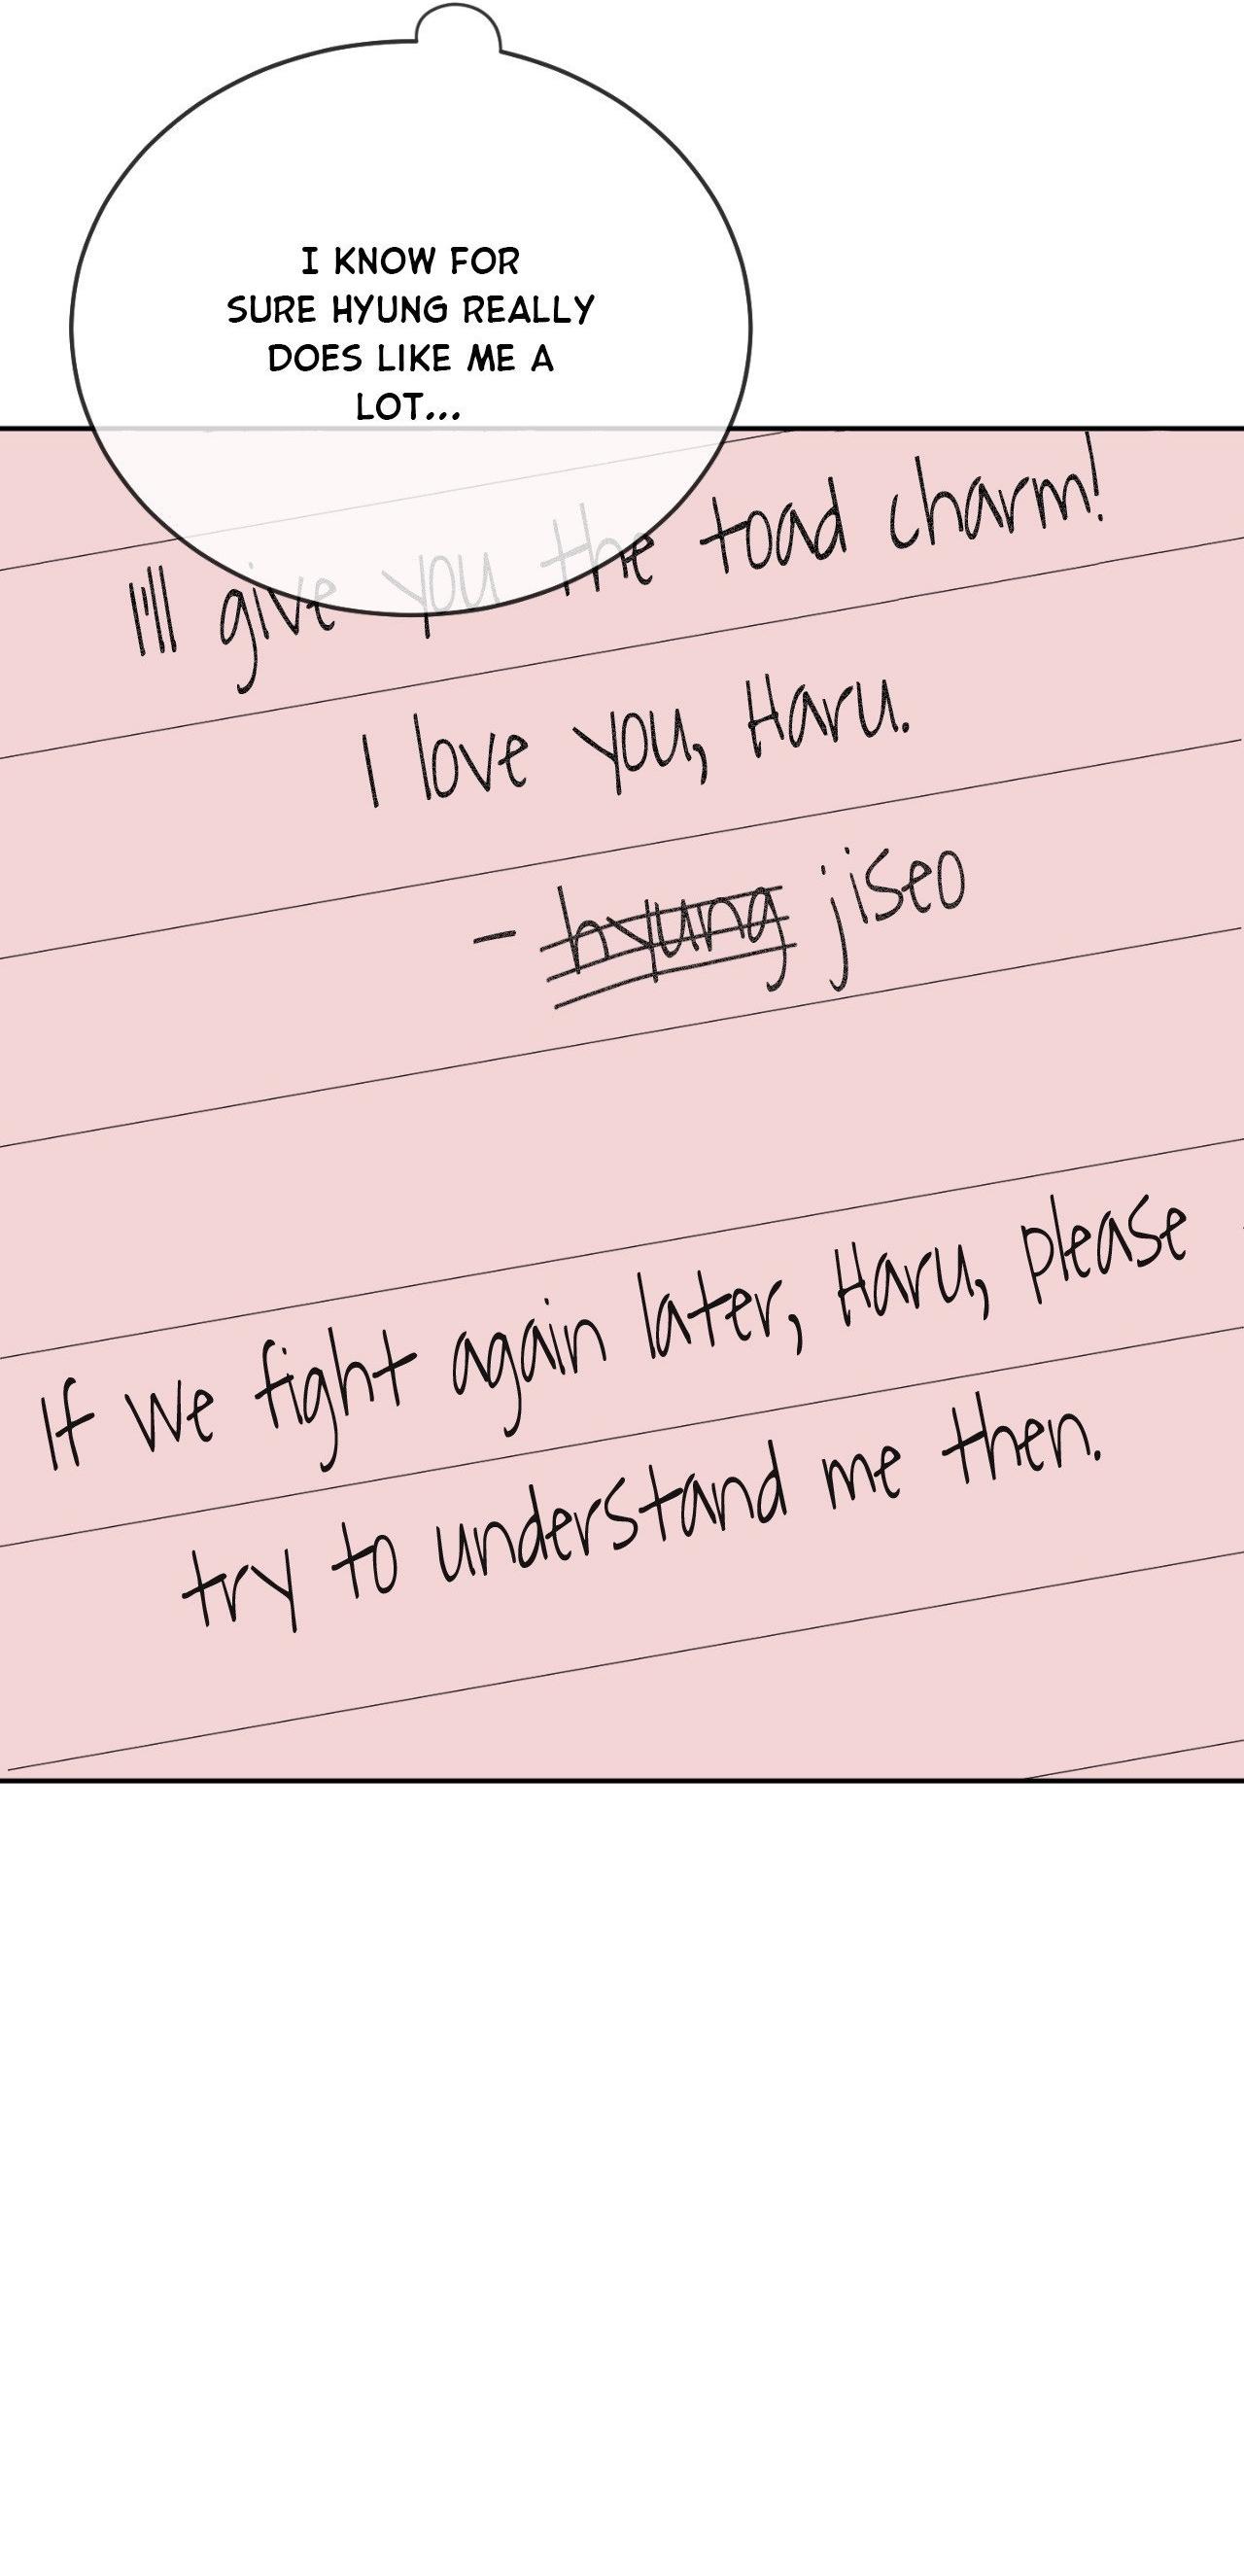 I KNOW FOR
SURE HYUNG REALLY
DOES LIKE ME A
LOT...
I'll give you the toad charm!
I love you, Haru.
- hyung jiseo
If we fight again later, Haru, please
try to understand me then.